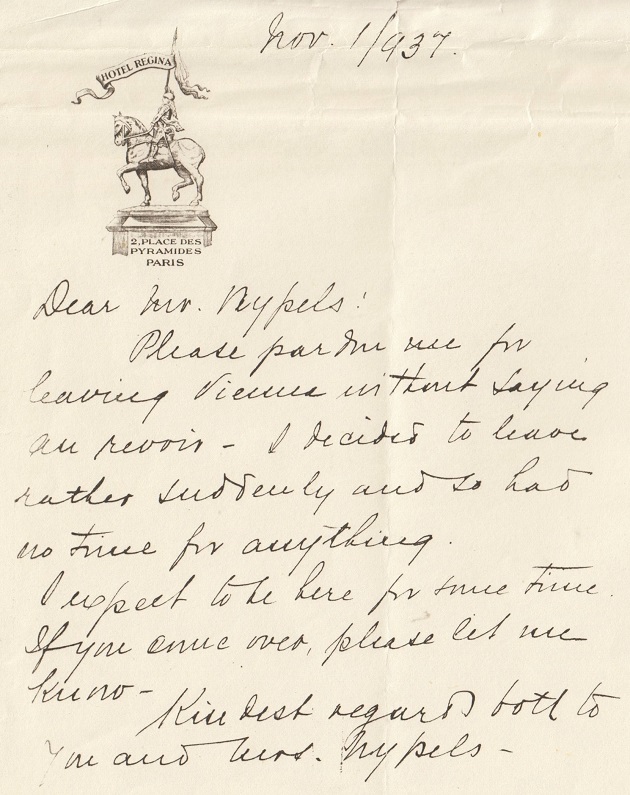 Nov. 1/937.
HOTEL REGINA
2, PLACE DES
PYRAMIDES
PARIS
Dear Mr. Nypels!
Please pardon me for
leaving Vienna without saying
au revoir - I decided to leave
rather suddenly and so had
no time for anything.
I expect to be here for some time.
If you come over, please let me
know -
Kindest regards both to
you and Mrs. Nypels -